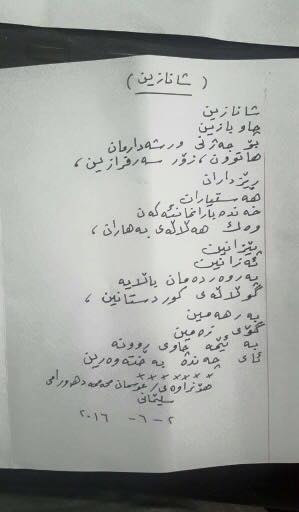 ( شانازین )
شانازین
چاو بازین
بۆ جەژنی وەرشەدارمان
هاتوون ، زۆر سەرفرازین ،
ڕێزداران
هەستیاران
خەندە بارانمانئەکەن
وەک هەڵاڵەی بەهاران ،
بێزانین
ئەزانین
پەروەردەمان باڵایە
گوڵاڵەی کوردستانین ،
بەرهەمین
گۆی زەمین
بە ئێمە چاوی ڕوونە
ئای چەندە بەختەوەرین
×××××××
هۆنراوەی / عوسمان محەمەد هەورامی
سلێمانی
٢ - ٦ - ٢٠١٦